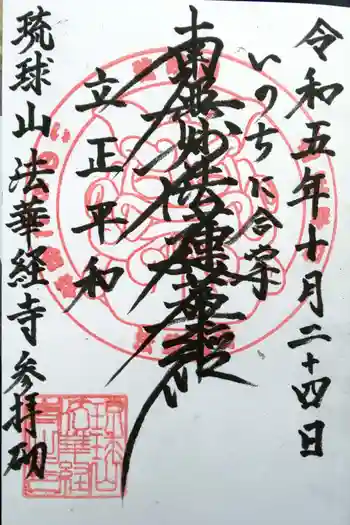 令和五年十月二十四日
いのちに合掌
南無妙法蓮華経
立正平和
琉球山法華経寺参拝切